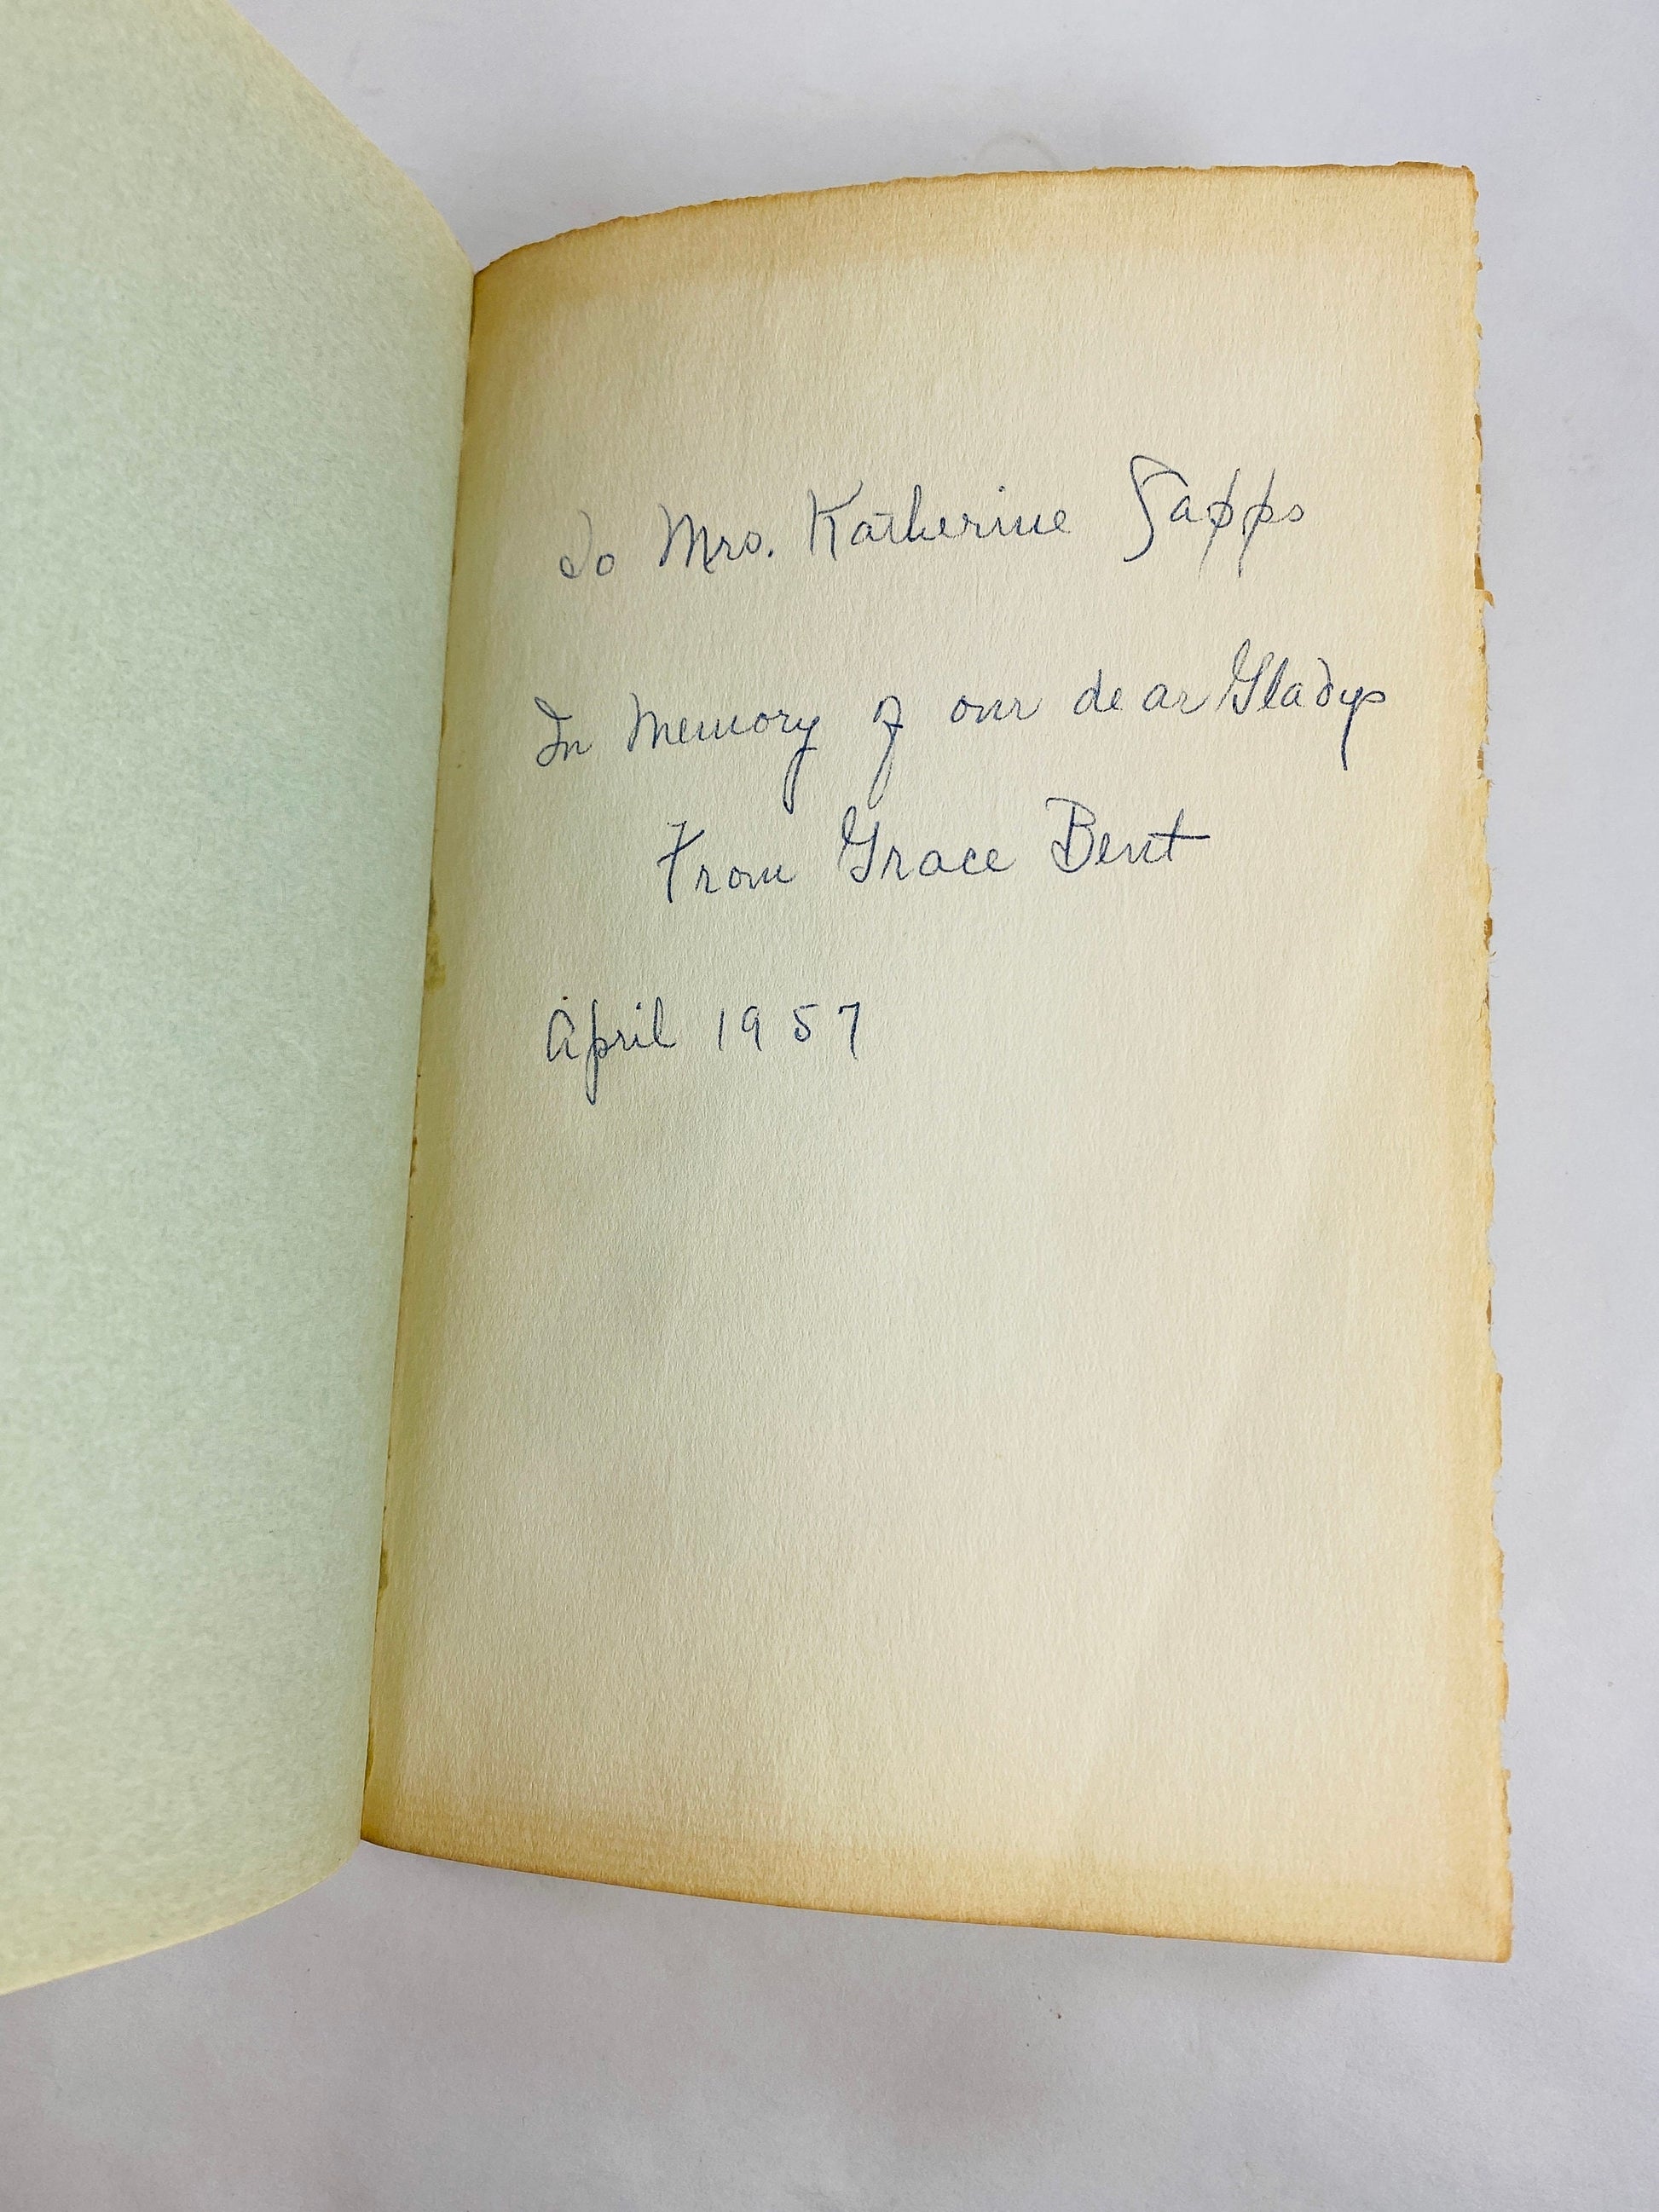 To Mrs. Katherine Sapps
In Memory of our dear Gladys
From Grace Bent
April 1957